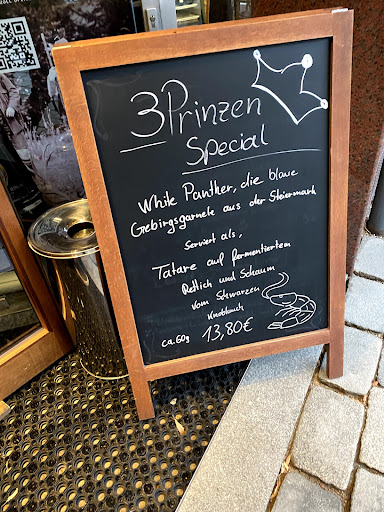 3Prinzen
Special
White Panther, die blaue
Gebirgsgarnele aus der Steiermark
Serviert als,
Tatare auf fermentiertem
Rettich und Schaum
vom Schwarzen
Knoblauch
ca. 60g 13,80€